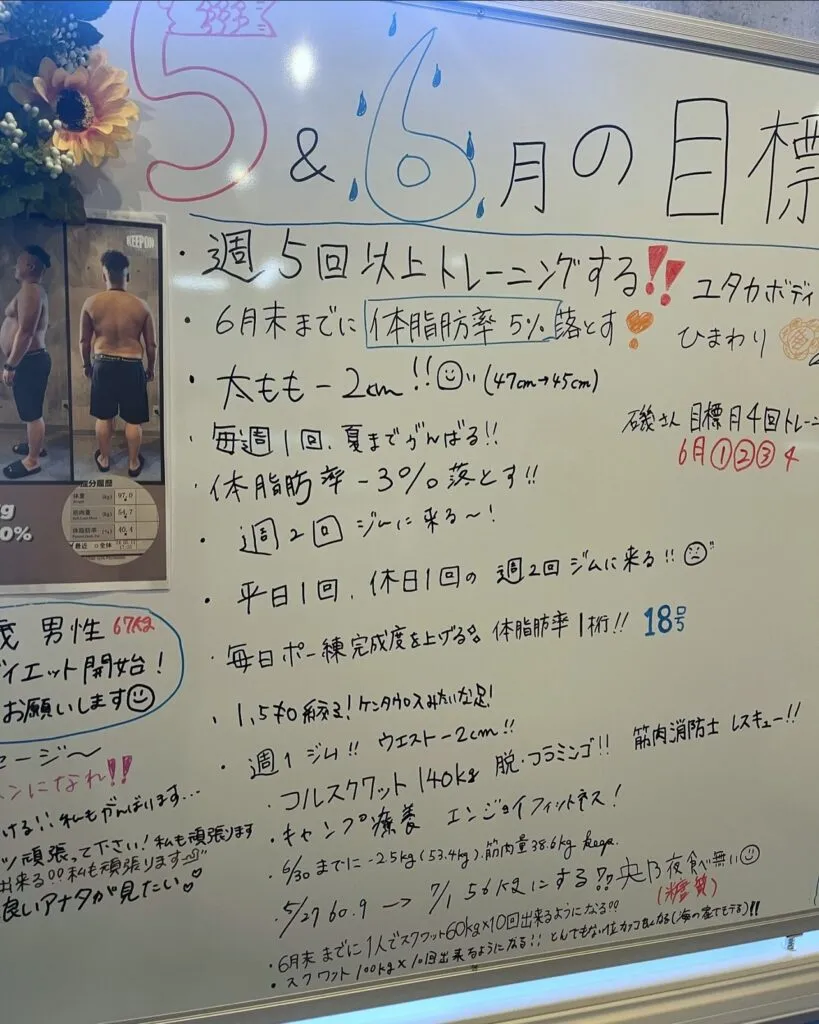 5 & 6月の目標
・週5回以上トレーニングする!!
ユタカボディ
・6月末までに体脂肪率5%落とす
ひまわり
・太もも-2cm!! (47cm→45cm)
磯さん 目標月4回トレーニ
6月①②③4
・毎週1回、夏までがんばる!!
・体脂肪率-3%落とす!!
・週2回ジムに来る〜!
・平日1回、休日1回の週2回ジムに来る!!
・毎日ポー練完成度を上げる 体脂肪率1桁!! 18号
・1,5キロ絞る!ケンタウロスみたいな足!
・週1ジム!! ウエスト-2cm!!
・フルスクワット140kg 脱・フラミンゴ!! 筋肉消防士 レスキュー!!
・キャンプ療養 エンジョイフィットネス!
・6/30までに-2.5kg(53.4kg).筋肉量38.6kg keep.
・5/27 60.9 → 7/1 56kgにする?? 夜食べ無い
(糖質)
・6月末までに1人でスクワット60kg×10回出来るようになる!!
・スクワット100kg×10回出来るようになる!! とんでもない位カッコよくなる(海の家でモテる)!!
KEEPON
成分履歴
体重 (kg) 97.0
筋肉量 (kg) 54.7
体脂肪率 (%) 40.4
最近 全体
g
0%
歳 男性 67kg
イエット開始!
お願いします
セージ〜
ンになれ!!
ける!!私もがんばります...
ツ頑張って下さい!私も頑張ります
出来る!!私も頑張ります
良いアナタが見たい